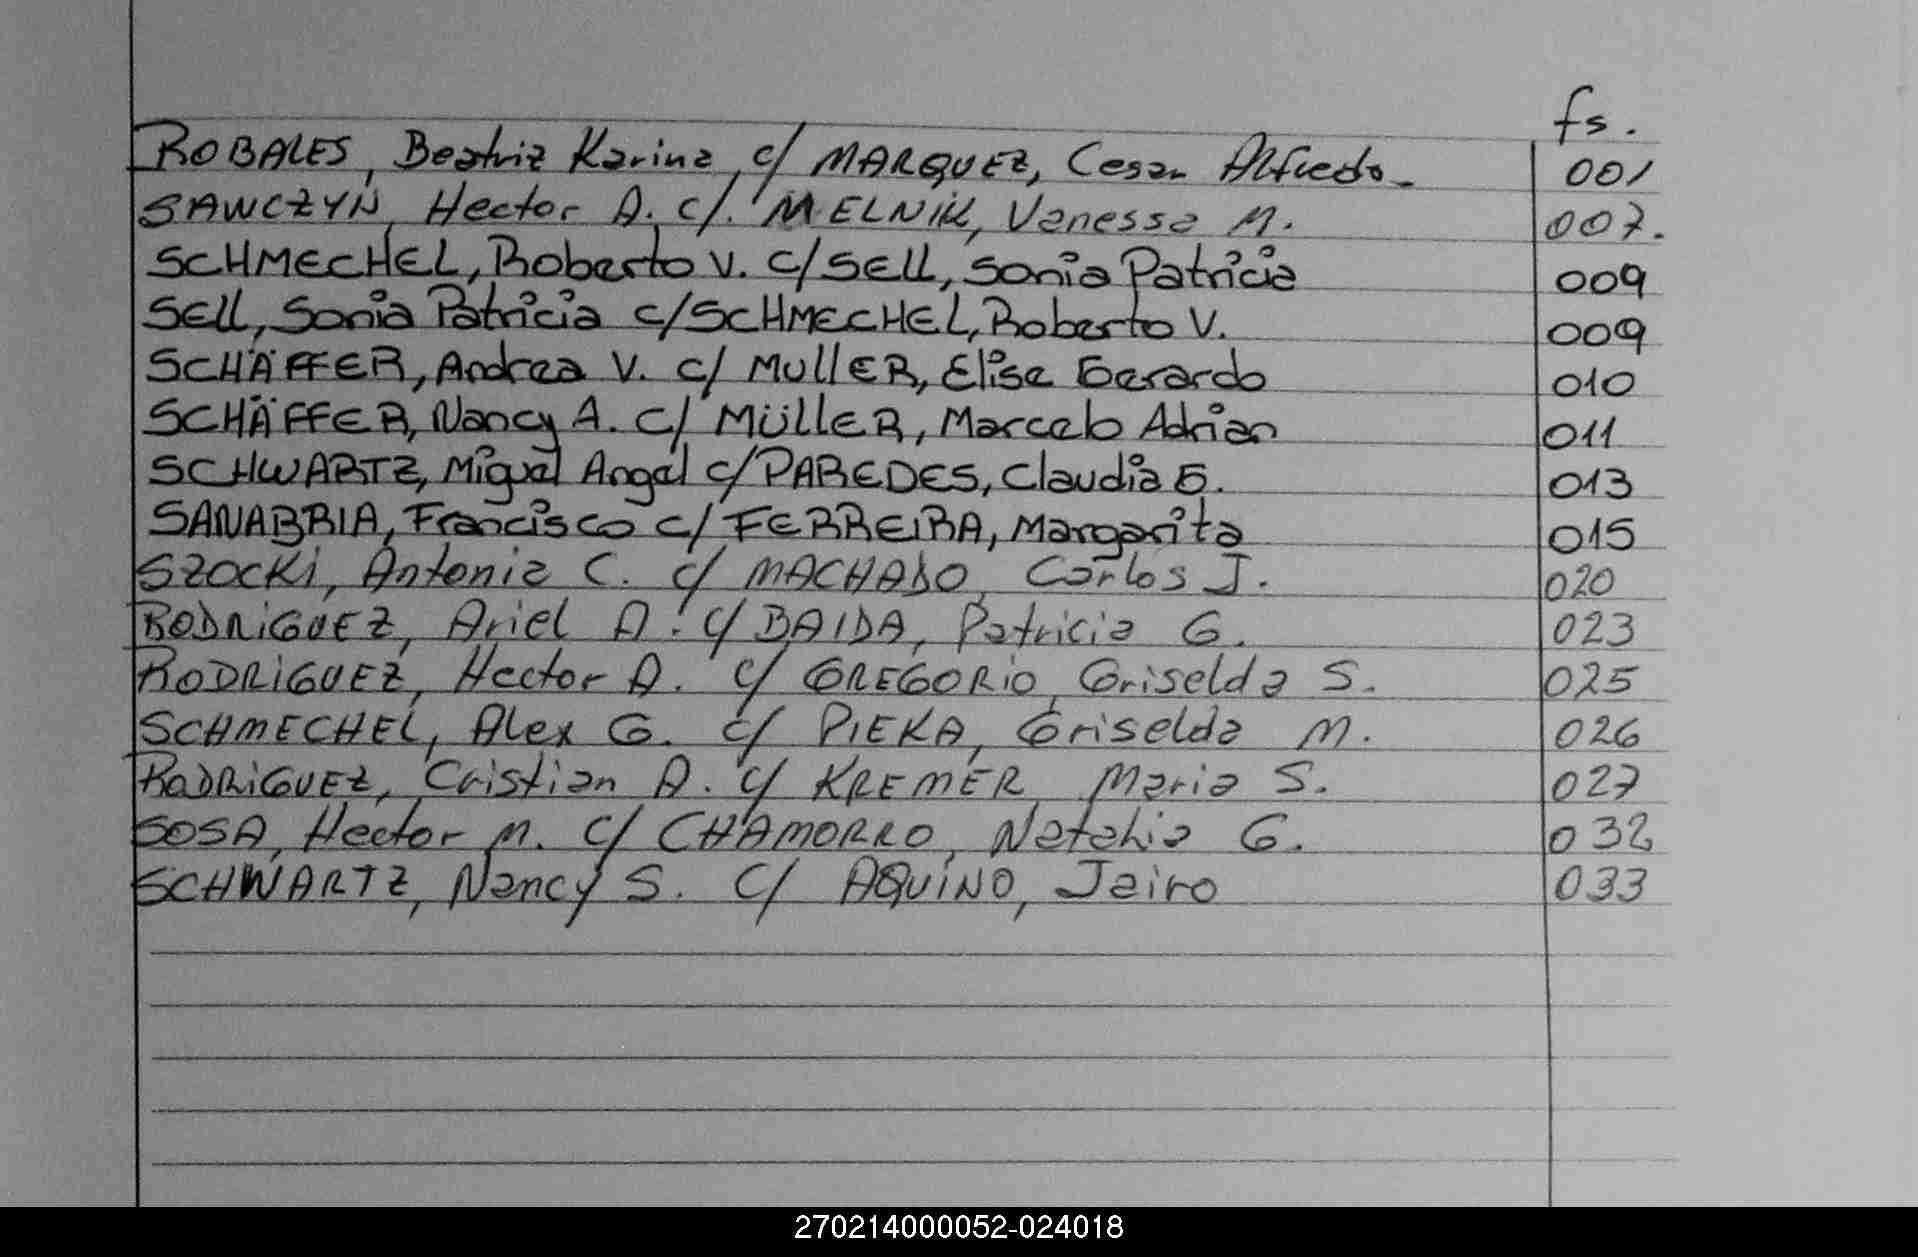 fs.
ROBALES, Beatriz Karina, c/ MARQUEZ, Cesar Alfredo- 001
SAWCZYN, Hector A. c/. MELNIK, Vanessa M. 007.
SCHMECHEL, Roberto V. c/ SELL, Sonia Patricia 009
SELL, Sonia Patricia c/ SCHMECHEL, Roberto V. 009
SCHÄFFER, Andrea V. c/ MULLER, Elise Gerardo 010
SCHÄFFER, Nancy A. c/ MÜLLER, Marcelo Adrian 011
SCHWARTZ, Miguel Angel c/ PAREDES, Claudia E. 013
SANABRIA, Francisco c/ FERREIRA, Margarita 015
SZOCKI, Antonia C. c/ MACHADO, Carlos J. 020
RODRIGUEZ, Ariel A. c/ BAIDA, Patricia G. 023
RODRIGUEZ, Hector A. c/ GREGORIO, Griselda S. 025
SCHMECHEL, Alex G. c/ PIEKA, Griselda M. 026
RODRIGUEZ, Cristian A. c/ KREMER, Maria S. 027
SOSA, Hector M. c/ CHAMORRO, Natalia G. 032
SCHWARTZ, Nancy S. c/ AQUINO, Jairo 033
270214000052-024018